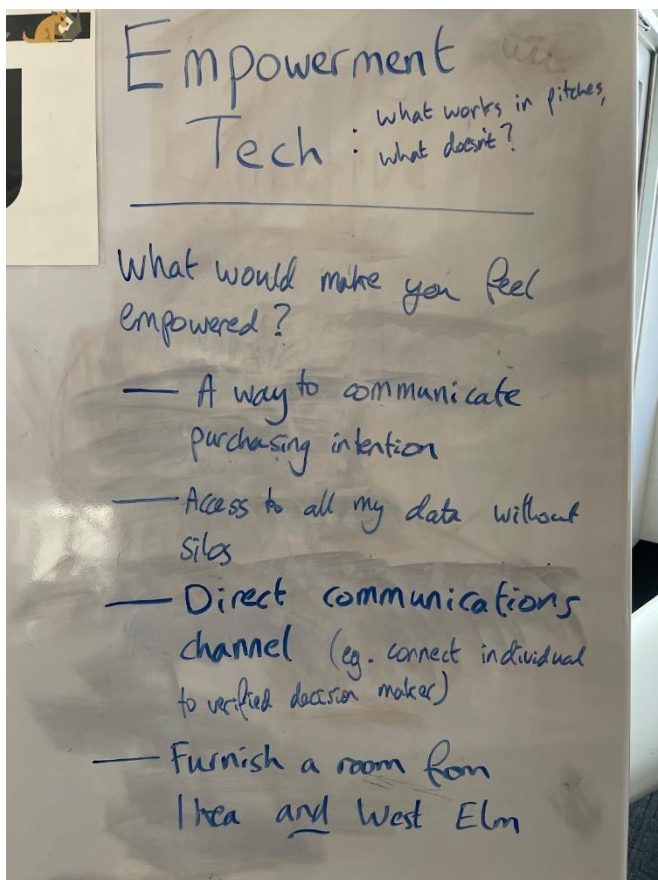 Empowerment
Tech : what works in pitches,
what doesn't?
What would make you feel
empowered?
— A way to communicate
purchasing intention
— Access to all my data without
silos
— Direct communications
channel (eg. connect individual
to verified decision maker)
— Furnish a room from
Ikea and West Elm